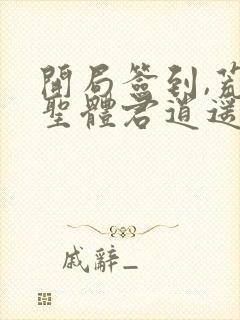 開局簽到,荒
聖體君逍遥
戚辭_